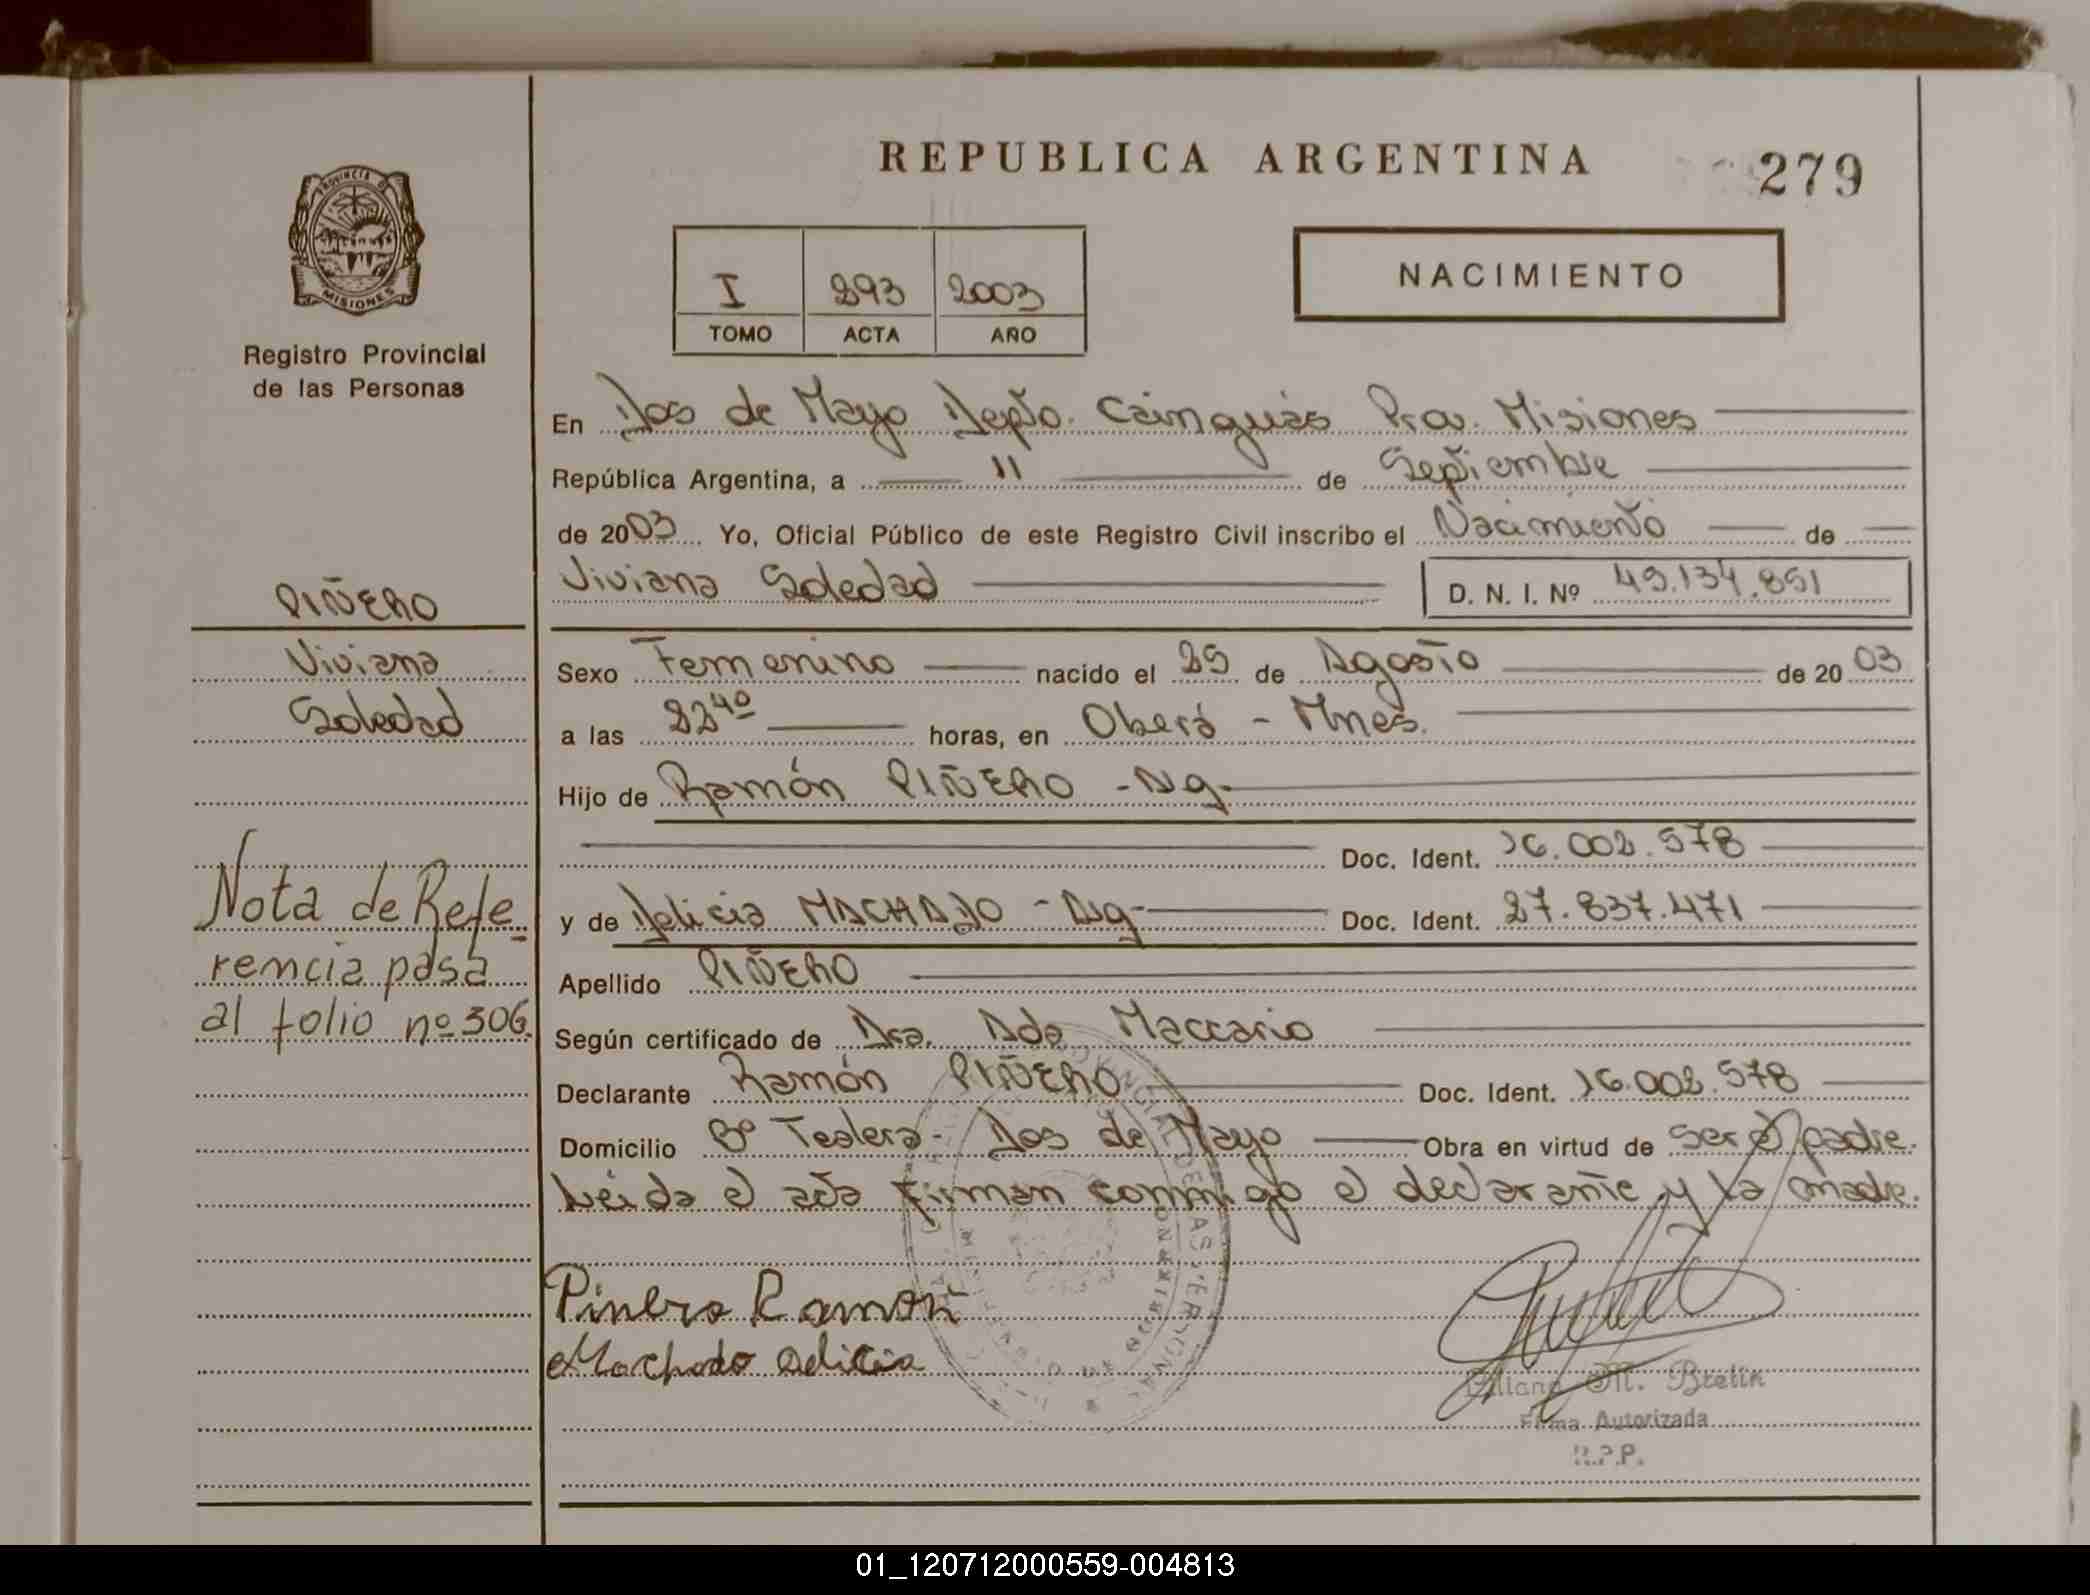 REPUBLICA ARGENTINA
279
PROVINCIA DE
MISIONES
Registro Provincial
de las Personas
I 293 2003
TOMO ACTA AÑO
NACIMIENTO
En Dos de Mayo Depto. Cainguás Prov. Misiones
República Argentina, a 11 de Septiembre
de 2003 Yo, Oficial Público de este Registro Civil inscribo el Nacimiento de
Viviana Soledad D. N. I. Nº 45.134.851
PIÑERO
Viviana
Soledad
Nota de Refe-
rencia pasa
al folio nº 306.
Sexo Femenino nacido el 25 de Agosto de 2003
a las 22 40 horas, en Oberá - Mnes.
Hijo de Ramón PIÑERO - Arg-
Doc. Ident. 16.002.578
y de Delicia MACHADO - Arg- Doc. Ident. 27.837.471
Apellido PIÑERO
Según certificado de Dra. Ada Maccario
Declarante Ramón PIÑERO Doc. Ident. 16.002.578
Domicilio Bº Tealera- Dos de Mayo Obra en virtud de ser el padre.
Leída el acta firman conmigo el declarante y la madre.
Piñero Ramon
Machado Delicia
M. Bretin
Firma Autorizada
R.P.P.
01_120712000559-004813